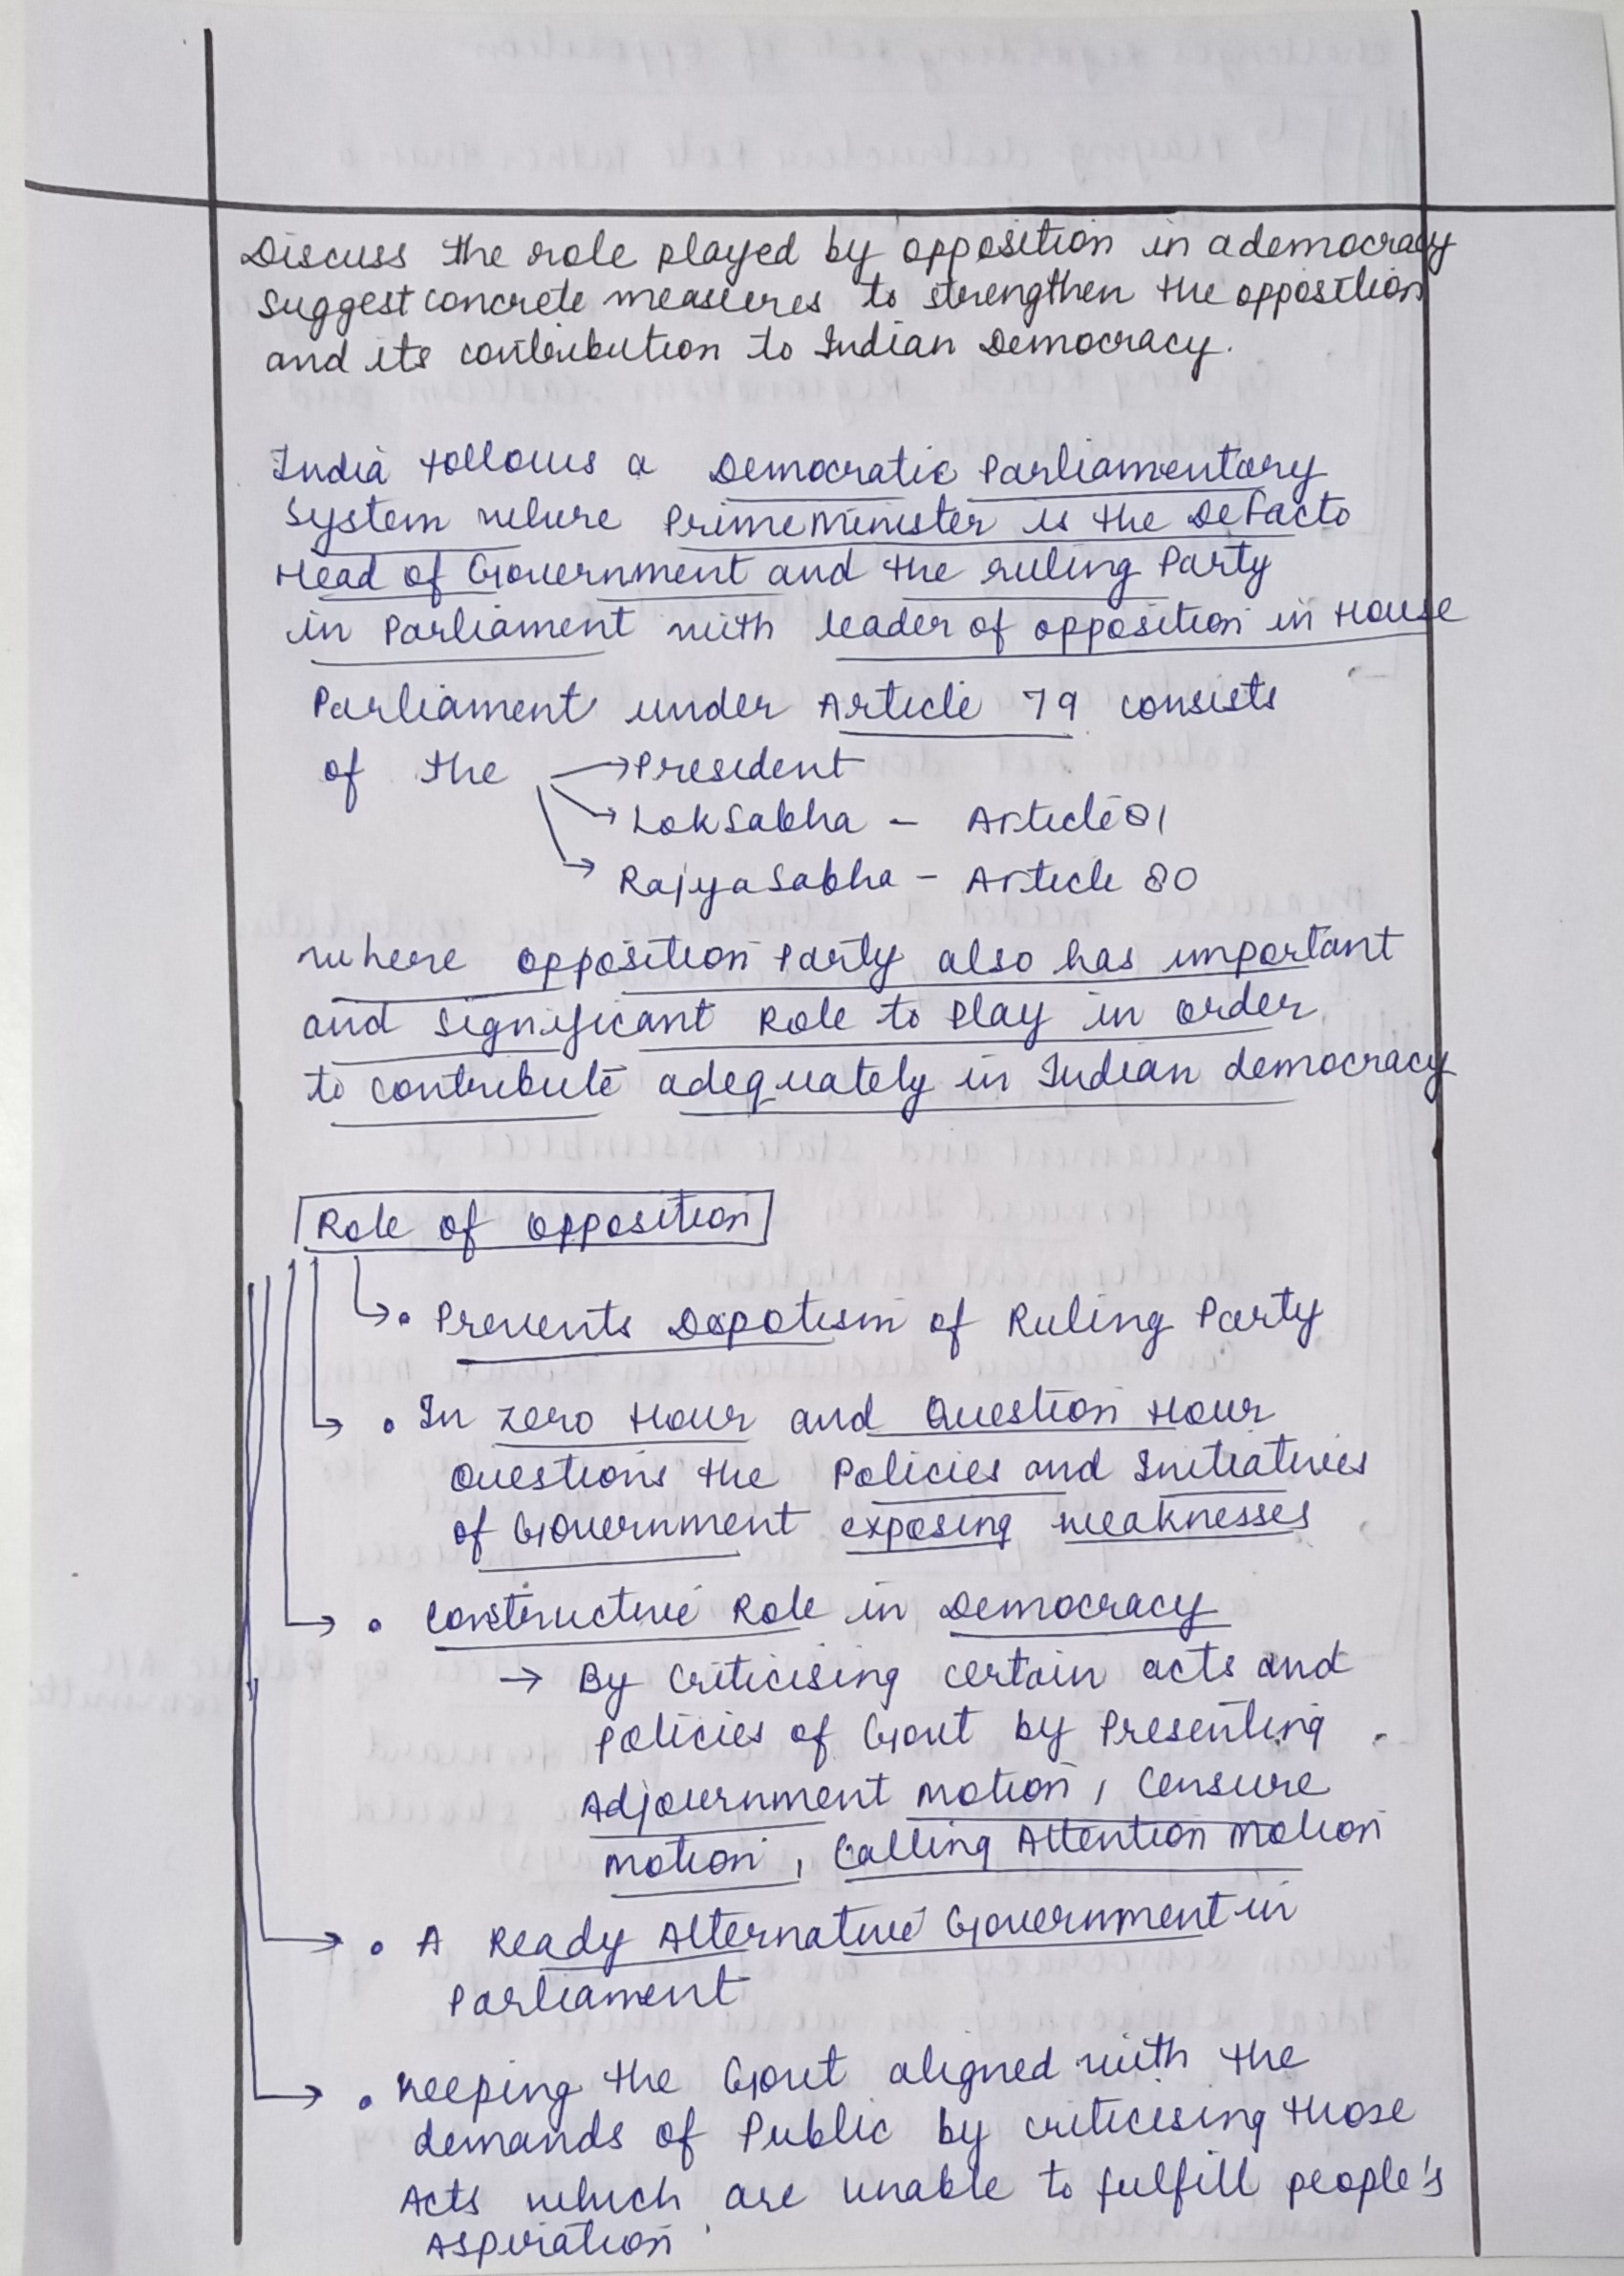 Discuss the role played by opposition in a democracy
Suggest concrete measures to strengthen the opposition
and its contribution to Indian Democracy.
India follows a Democratic Parliamentary
System where Prime Minister is the Defacto
Head of Government and the ruling Party
in Parliament with leader of opposition in House
Parliament under Article 79 consists
of the → President
→ Lok Sabha - Article 81
→ Rajya Sabha - Article 80
where opposition Party also has important
and significant Role to Play in order
to contribute adequately in Indian democracy
Role of opposition
• Prevents Dspotism of Ruling Party
• In Zero Hour and Question Hour
Questions the Policies and Initiatives
of Government exposing weaknesses
• Constructive Role in Democracy
→ By Criticising certain acts and
Policies of Govt by Presenting
Adjournment Motion, Censure
Motion, Calling Attention Motion
• A Ready Alternative Government in
Parliament
• Keeping the Govt aligned with the
demands of Public by criticising those
Acts which are unable to fulfill people's
Aspiration